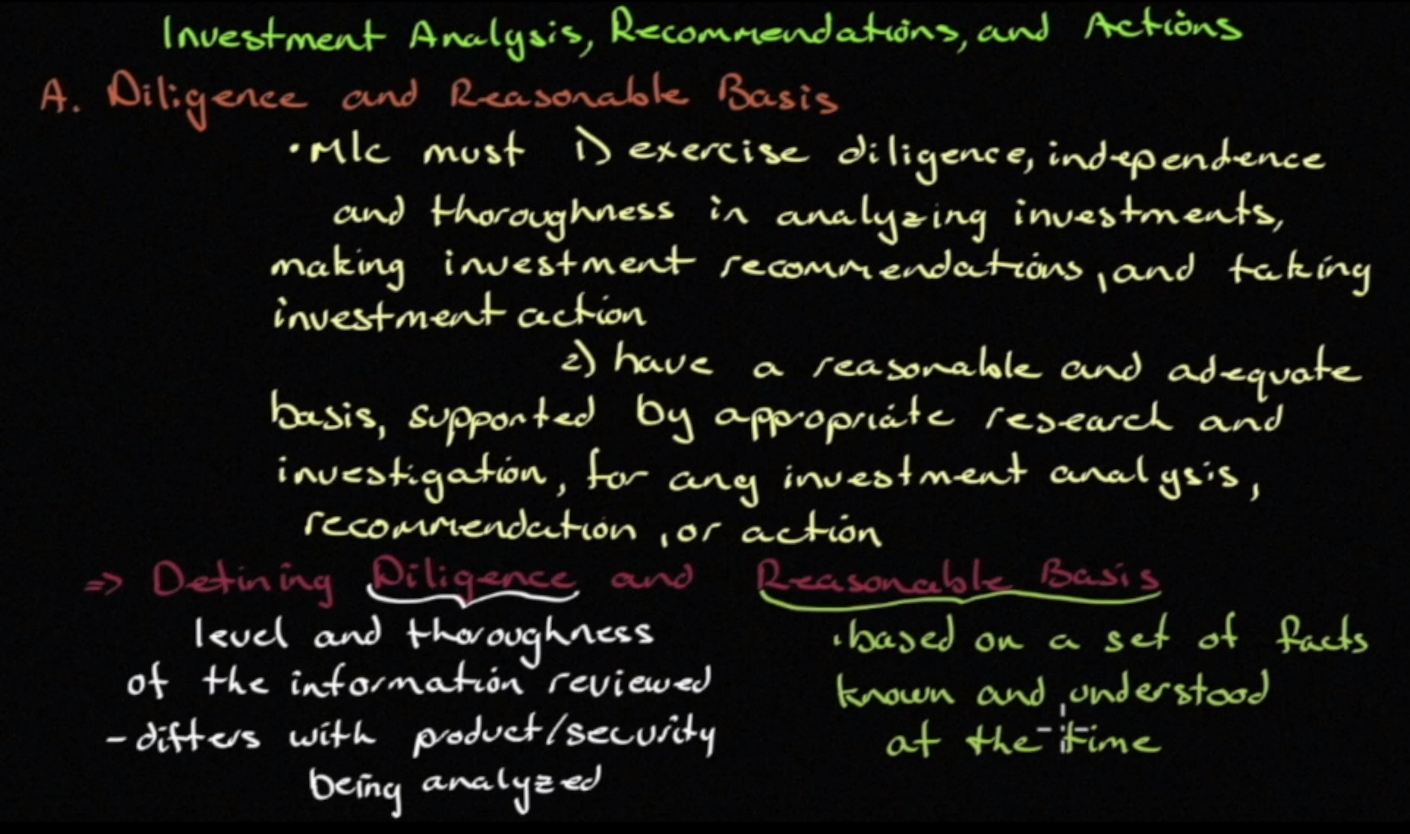 Investment Analysis, Recommendations, and Actions
A. Diligence and Reasonable Basis
• M/c must 1) exercise diligence, independence
and thoroughness in analyzing investments,
making investment recommendations, and taking
investment action
2) have a reasonable and adequate
basis, supported by appropriate research and
investigation, for any investment analysis,
recommendation, or action
=> Defining Diligence and Reasonable Basis
level and thoroughness
of the information reviewed
- differs with product/security
being analyzed
• based on a set of facts
known and understood
at the time